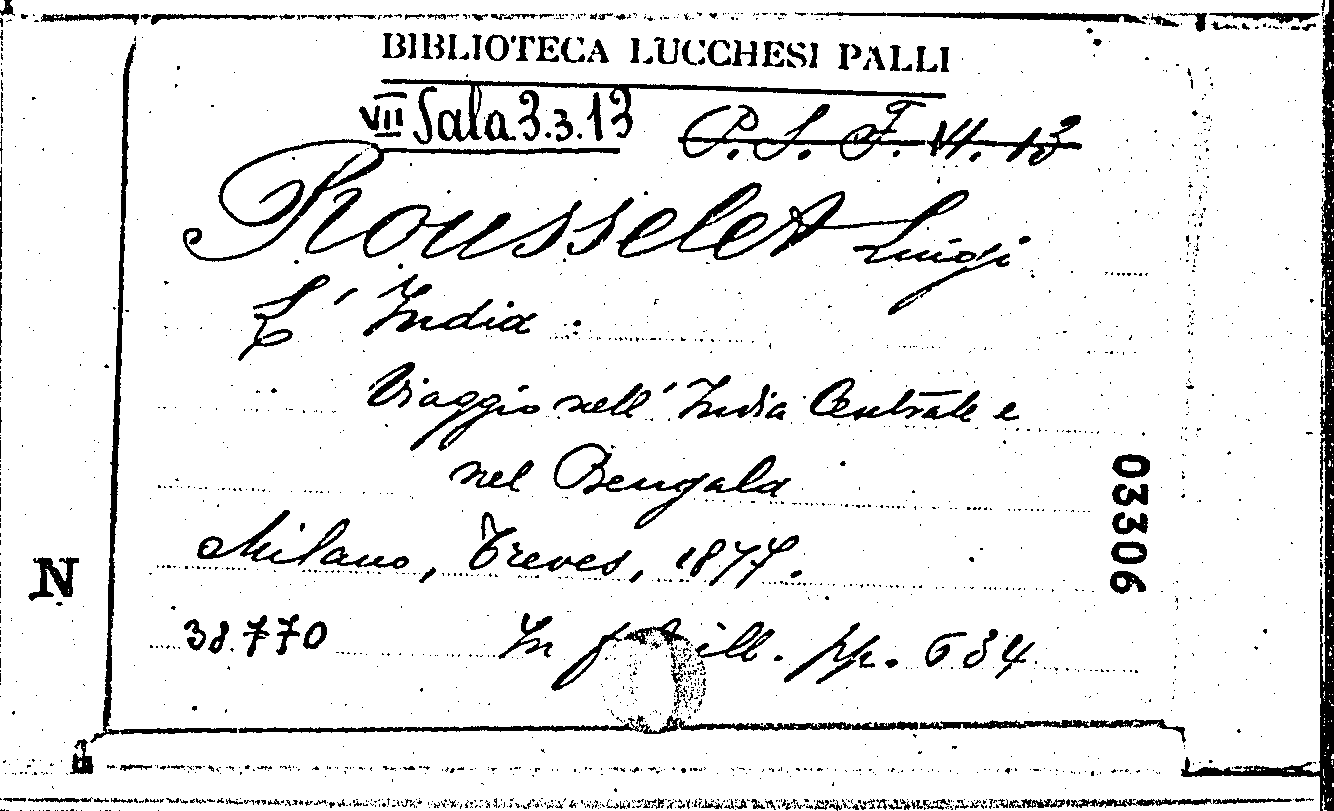 BIBLIOTECA LUCCHESI PALLI
VII Sala 3.3.13 P. S. F. VI. 13
Rousselet Luigi
L' India :
Viaggio nell' India Centrale e
nel Bengala
03306
Milano, Treves, 1877.
N
38.770 In f ill. pp. 634